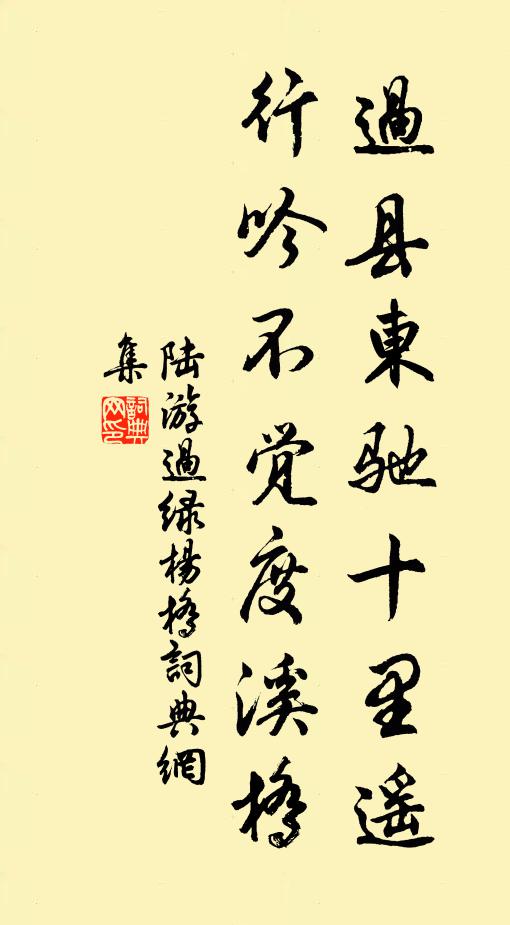 過县東馳十里遥
行吟不觉度溪橋
陆游過绿楊橋詞典網
集
詞典网印